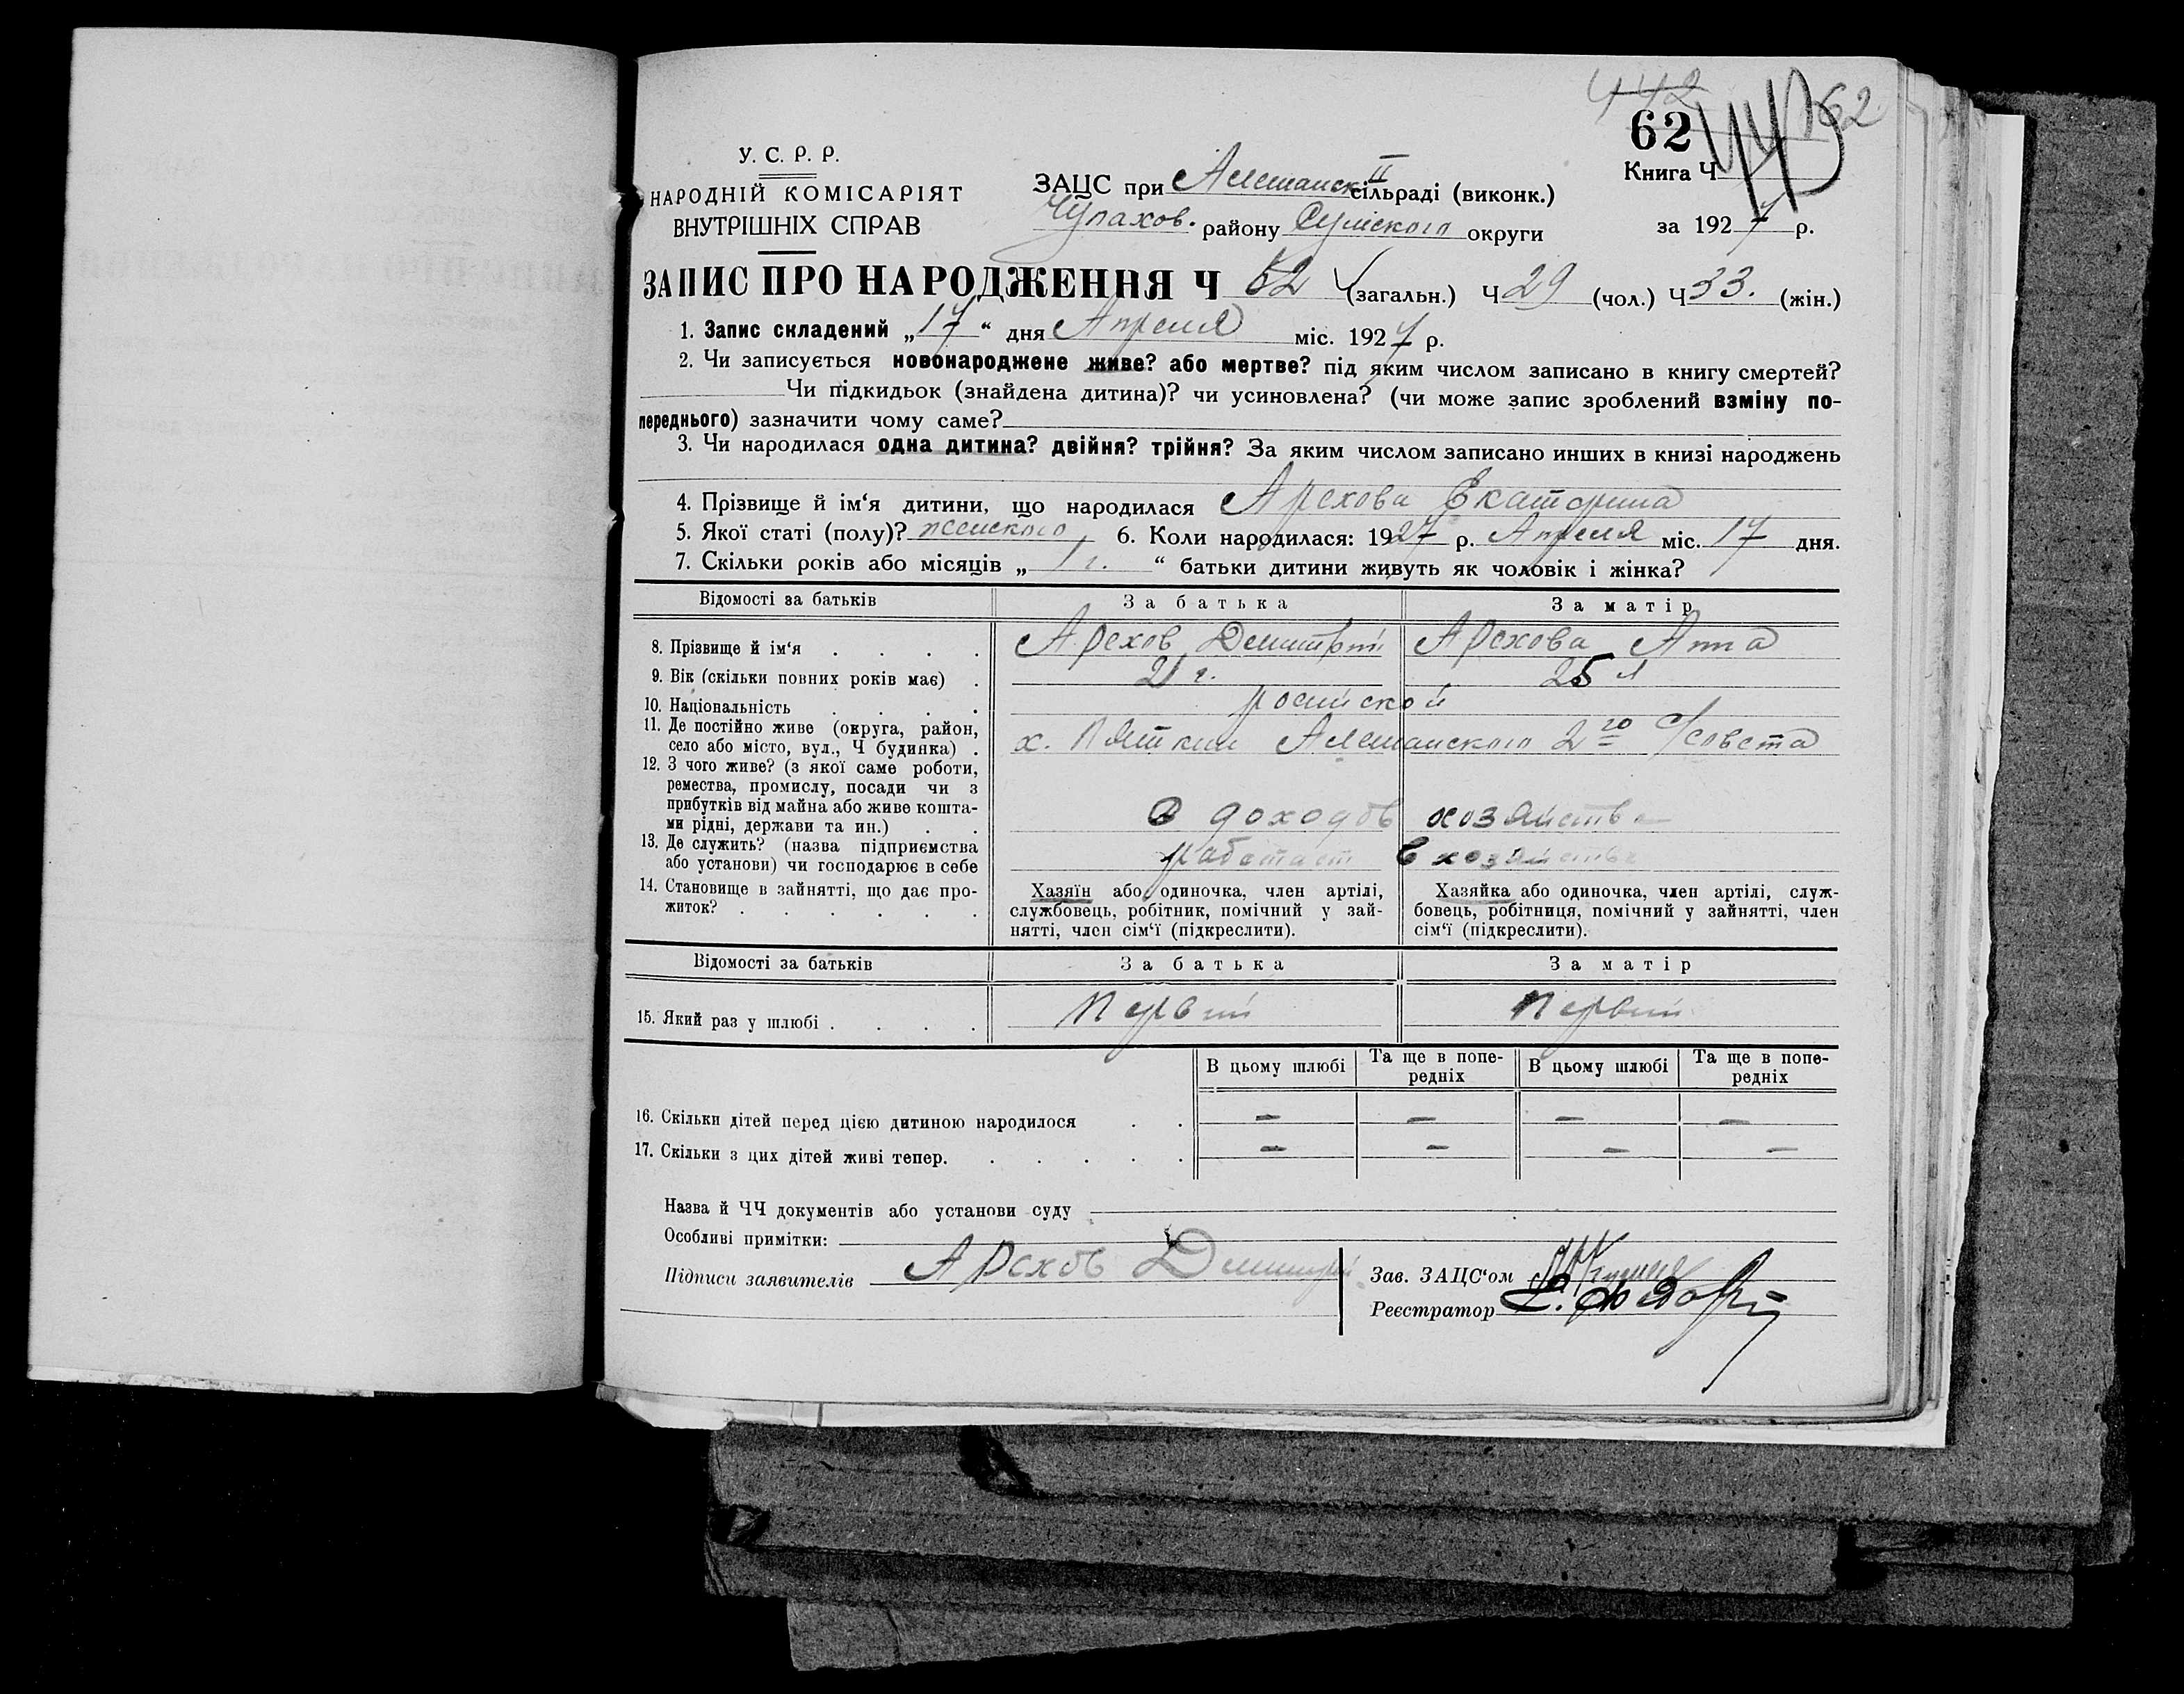 442
62 443 62
У. С. Р. Р.
НАРОДНІЙ КОМІСАРІЯТ
ВНУТРІШНІХ СПРАВ
Книга Ч
ЗАЦС при Алешанск II сільраді (виконк.)
Чупахов. району Сумского округи
за 1927 р.
ЗАПИС ПРО НАРОДЖЕННЯ Ч 62 (загальн.) Ч 29 (чол.) Ч 33. (жін.)
1. Запис складений „17“ дня Апреля міс. 1927 р.
2. Чи записується новонароджене живе? або мертве? під яким числом записано в книгу смертей?
Чи підкидьок (знайдена дитина)? чи усиновлена? (чи може запис зроблений взміну по-
переднього) зазначити чому саме?
3. Чи народилася одна дитина? двійня? трійня? За яким числом записано инших в книзі народжень
4. Прізвище й ім‘я дитини, що народилася Арехова Екатерина
5. Якої статі (полу)? женского 6. Коли народилася: 1927 р. Апреля міс. 17 дня.
7. Скільки років або місяців „ 1 г. “ батьки дитини живуть як чоловік і жінка?
Відомості за батьків За батька За матір
8. Прізвище й ім‘я . . . . Арехов Дмитрий Арехова Анна
9. Вік (скільки повних років має) . 21 г. 25 л
10. Національність . . . . росийской
11. Де постійно живе (округа, район,
село або місто, вул., Ч будинка) . х. Пяткин Алешанского 2го С/совета
12. З чого живе? (з якої саме роботи,
ремества, промислу, посади чи з
прибутків від майна або живе кошта-
ми рідні, держави та ин.) . . доходов хозяйства
13. Де служить? (назва підприємства
або установи) чи господарює в себе работает в хозяйстве
14. Становище в зайнятті, що дає про-
житок? . . . . . .
Хазяїн або одиночка, член артілі,
службовець, робітник, помічний у зай-
нятті, член сім‘ї (підкреслити).
Хазяйка або одиночка, член артілі, служ-
бовець, робітниця, помічний у зайнятті, член
сім‘ї (підкреслити).
Відомості за батьків За батька За матір
15. Який раз у шлюбі . . . . Первий Первий
В цьому шлюбі Та ще в попе-редніх В цьому шлюбі Та ще в попе-редніх
16. Скільки дітей перед цією дитиною народилося . . – – – –
17. Скільки з цих дітей живі тепер. . . . . . – – – –
Назва й ЧЧ документів або установи суду
Особливі примітки:
Підписи заявителів Арехов Дмитрий
Зав. ЗАЦС‘ом
Реєстратор